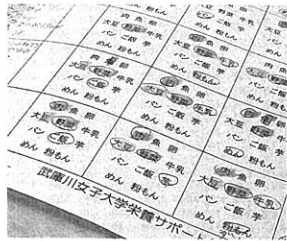 大豆 野菜 牛乳
パン ご飯 芋
めん 粉もん
肉 魚 卵
大豆 野菜 牛乳
パン ご飯 芋
めん 粉もん
肉 魚 卵
大豆 野菜 牛乳
パン ご飯 芋
めん 粉もん
肉 魚 卵
大豆 野菜 牛乳
パン ご飯 芋
めん 粉もん
肉 魚 卵
大豆 野菜 牛乳
パン ご飯 芋
めん 粉もん
肉 魚 卵
大豆 野菜 牛乳
パン ご飯 芋
めん 粉もん
肉 魚 卵
大豆 野菜 牛乳
パン ご飯 芋
めん 粉もん
肉 魚 卵
大豆 野菜 牛乳
パン ご飯 芋
めん 粉もん
武庫川女子大学栄養サポート